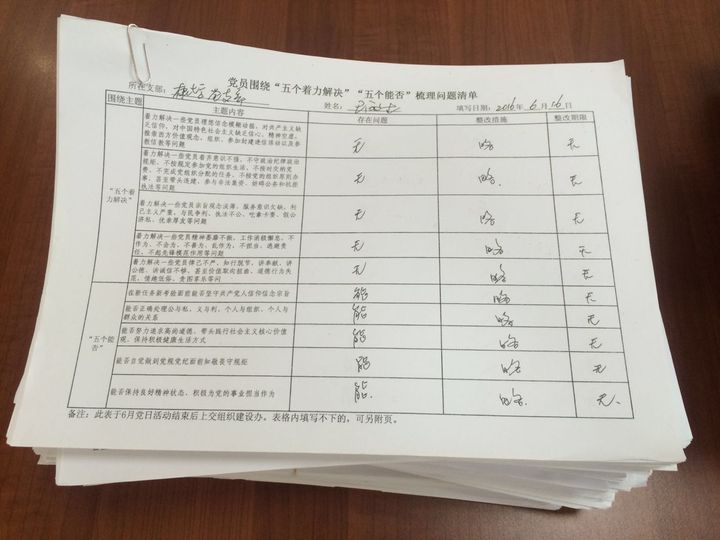 党员围绕“五个着力解决”“五个能否”梳理问题清单
所在支部： 姓名： 填写日期：2016年6月16日
围绕主题 主题内容 存在问题 整改措施 整改期限
“五个着力解决”
着力解决一些党员理想信念模糊动摇，对共产主义缺
乏信仰，对中国特色社会主义缺乏信心，精神空虚，
推崇西方价值观念，组织、参加封建迷信活动以及参
教信教等问题
无 略 无
着力解决一些党员党员意识不强，不守政治纪律政治
规矩，不按规定参加党的组织生活，不按时交纳党
费，不完成党组织分配的任务，不按党的组织原则办
事，甚至带头违建、参与非法集资、妨碍公务和抗拒
执法等问题
无 略. 无
着力解决一些党员宗旨观念淡薄，服务意识欠缺，利
己主义严重，与民争利、执法不公、吃拿卡要、假公
济私、优亲厚友等问题
无 略 无
着力解决一些党员精神萎靡不振，工作消极懈怠，不
作为、不会为、不善为、乱作为，不担当、逃避责
任，不起先锋模范作用等问题
无 略 无
着力解决一些党员律己不严，知行脱节，讲奉献、讲
公德、讲诚信不够，甚至价值取向扭曲、道德行为失
范、情趣低俗、贪图享乐等问
无 略 无
“五个能否”
在新任务新考验面前能否坚守共产党人信仰信念宗旨
能 略 无
能否正确处理公与私、义与利、个人与组织、个人与
群众的关系
能 略 无
能否努力追求高尚道德、带头践行社会主义核心价值
观、保持积极健康生活方式
能 略 无
能否自觉做到党规党纪面前知敬畏守规矩
能 略 无
能否保持良好精神状态、积极为党的事业担当作为
能. 略. 无.
备注：此表于6月党日活动结束后上交组织建设办。表格内填写不下的，可另附页。